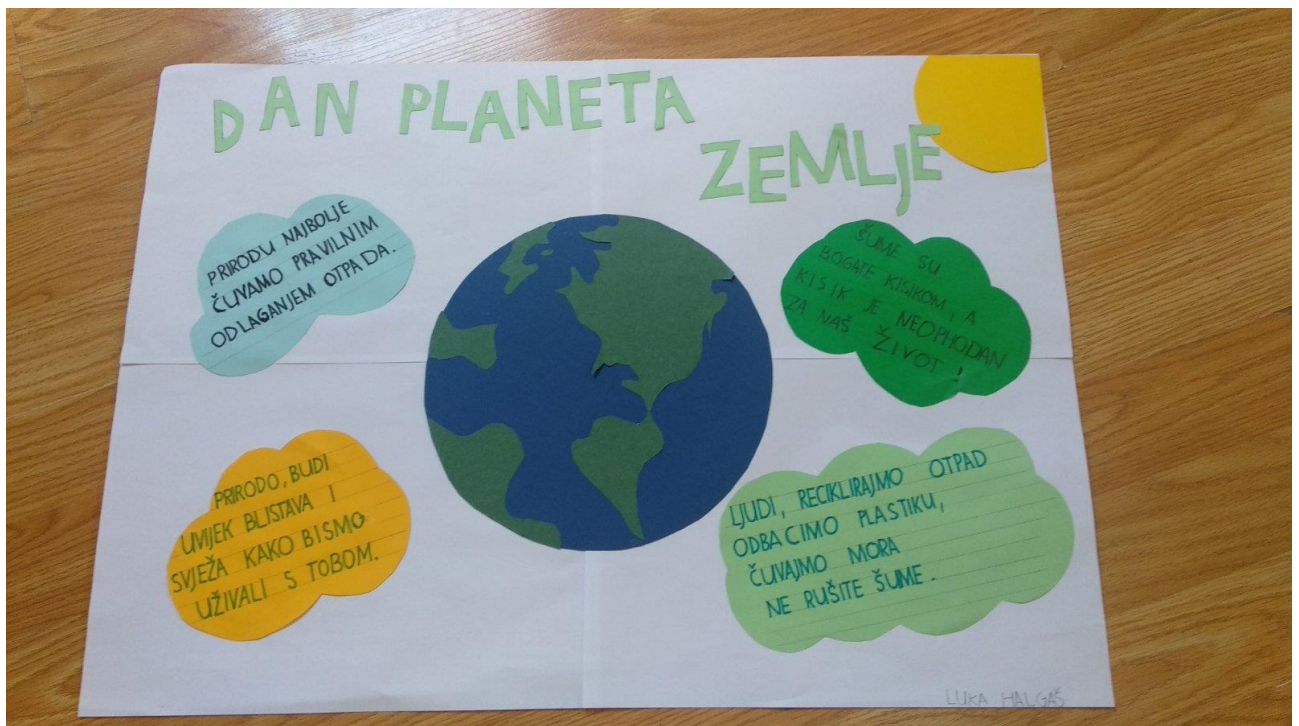 DAN PLANETA
ZEMLJE
PRIRODU NAJBOLJE
ČUVAMO PRAVILNIM
ODLAGANJEM OTPADA.
ŠUME SU
BOGATE KISIKOM, A
KISIK JE NEOPHODAN
ZA NAŠ ŽIVOT!
PRIRODO, BUDI
UVIJEK BLISTAVA I
SVJEŽA KAKO BISMO
UŽIVALI S TOBOM.
LJUDI, RECIKLIRAJMO OTPAD
ODBACIMO PLASTIKU,
ČUVAJMO MORA
NE RUŠITE ŠUME.
LUKA HALGAŠ